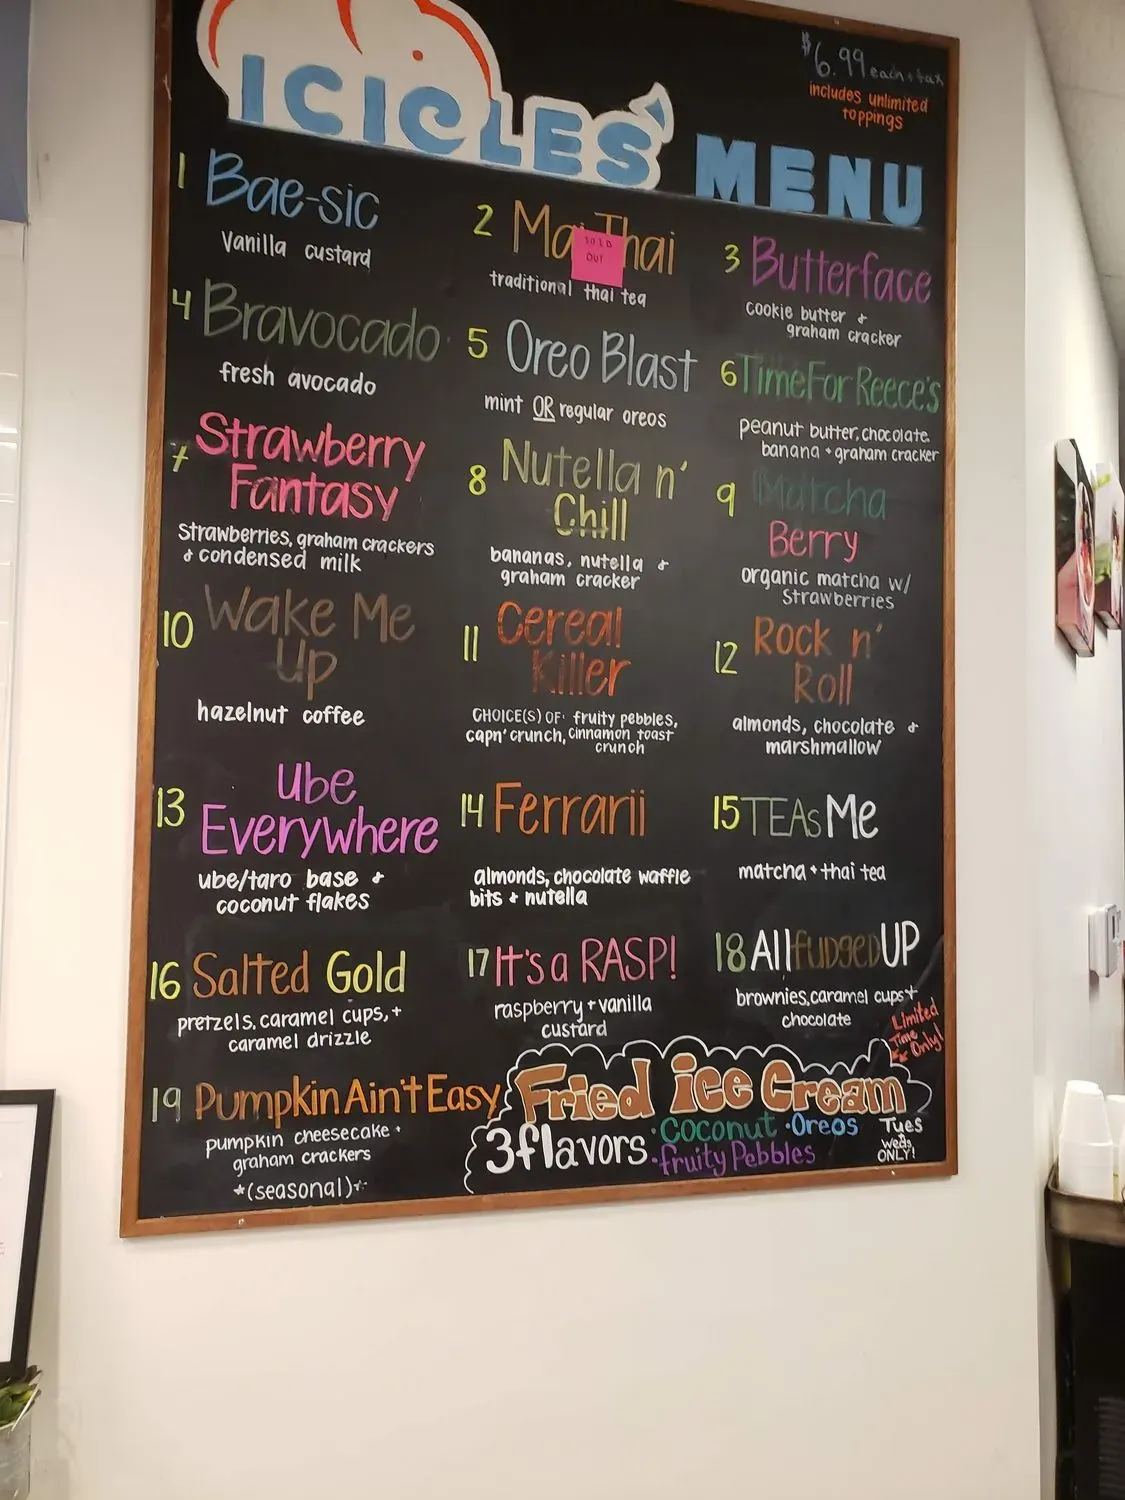 ICICLES' MENU
$6.99 each + tax
includes unlimited
toppings
1 Bae-sic
Vanilla custard
2 Mai Thai
SOLD
OUT
traditional thai tea
3 Butterface
cookie butter &
graham cracker
4 Bravocado
fresh avocado
5 Oreo Blast
mint OR regular oreos
6 Time For Reece's
peanut butter, chocolate,
banana + graham cracker
7 Strawberry
Fantasy
Strawberries, graham crackers
& condensed milk
8 Nutella n'
Chill
bananas, nutella &
graham cracker
9 Matcha
Berry
organic matcha w/
Strawberries
10 Wake Me
Up
hazelnut coffee
11 Cereal
Killer
CHOICE(S) OF: fruity pebbles,
capn' crunch, cinnamon toast
crunch
12 Rock n'
Roll
almonds, chocolate &
marshmallow
13 Ube
Everywhere
ube/taro base &
coconut flakes
14 Ferrarii
almonds, chocolate waffle
bits & nutella
15 TEAs Me
matcha + thai tea
16 Salted Gold
pretzels, caramel cups, +
caramel drizzle
17 It's a RASP!
raspberry + vanilla
custard
18 All fudged UP
brownies, caramel cups +
chocolate
19 Pumpkin Ain't Easy
pumpkin cheesecake +
graham crackers
*(seasonal)*
Limited
Time
Only!
Fried ice Cream
3 flavors
• Coconut • Oreos
• fruity Pebbles
Tues
Weds
ONLY!